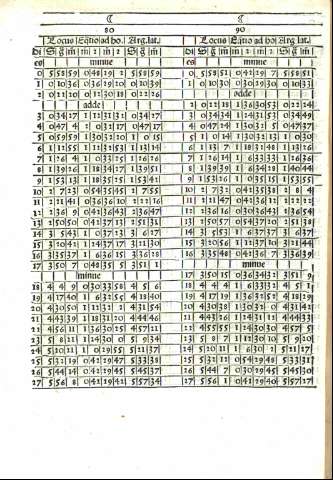 ☾ ☾
80 90
Locus Eq̃tio ad ho. Arg. lat. Locus Eq̃tio ad ho. Arg. lat.
Di S g̃ m̃ m 2 m 2 S g̃ m̃ Di S g̃ m̃ m 2 m 2 S g̃ m̃
es minue es minue
0 5 58 59 0 48 29 2 5 58 59 0 5 58 51 0 42 29 7 5 58 51
1 0 10 36 0 36 29 20 0 10 39 1 0 10 30 0 30 29 30 0 10 33
2 0 22 10 0 12 30 18 0 22 26 adde
adde 2 0 22 18 1 36 30 53 0 22 24
3 0 34 27 1 12 31 32 0 34 27 3 0 34 39 1 24 31 53 0 34 49
4 0 47 4 2 0 32 17 0 47 17 4 0 47 29 1 30 32 5 0 47 37
5 0 59 59 1 30 32 20 1 0 5 1 0 14 1 30 32 13 1 0 30
6 1 12 55 1 12 32 53 1 13 14 6 1 13 7 1 18 31 48 1 13 26
7 1 26 4 1 0 33 25 1 26 26 7 1 26 14 1 6 33 33 1 26 36
8 1 39 26 1 18 34 7 1 39 51 8 1 39 39 1 6 34 28 1 40 4
9 1 53 13 1 18 35 25 1 53 42 9 1 53 26 1 0 35 15 1 53 55
10 2 7 23 0 54 35 45 2 7 55 10 2 7 32 0 42 35 38 2 8 4
11 2 21 41 0 36 36 10 2 22 16 11 2 21 47 0 42 36 12 2 22 22
12 2 36 9 0 42 36 43 2 36 47 12 2 36 16 0 30 36 43 2 36 54
13 2 50 50 0 42 37 12 2 51 31 13 2 50 57 0 54 37 10 2 51 38
14 3 5 43 1 0 37 23 3 6 27 14 3 5 53 1 6 37 37 3 6 37
15 3 20 42 1 24 37 17 3 21 30 15 3 20 56 1 12 37 10 3 21 44
16 3 35 37 1 6 36 15 3 36 28 16 3 35 48 0 42 36 7 3 36 39
17 3 50 7 0 48 35 5 3 51 1 minue
minue 17 3 50 15 0 36 34 32 3 51 9
18 4 4 9 0 30 33 58 4 5 6 18 4 4 4 1 6 33 32 4 5 1
19 4 17 40 1 6 32 55 4 18 40 19 4 17 19 1 36 32 52 4 18 29
20 4 30 50 1 12 32 2 4 31 53 20 4 30 28 1 30 32 0 4 31 41
21 4 43 39 1 18 31 20 4 44 46 21 4 43 26 1 24 31 12 4 44 33
22 4 56 11 1 36 30 25 4 57 21 22 4 55 55 1 24 30 30 4 57 5
23 5 8 21 1 24 30 0 5 9 34 23 5 8 7 1 12 30 10 5 9 20
24 5 20 21 1 0 29 55 5 21 37 24 5 20 11 1 6 30 2 5 21 27
25 5 32 19 0 42 29 47 5 33 38 25 5 32 12 0 54 29 48 5 33 31
26 5 44 14 0 42 29 45 5 45 37 26 5 44 7 0 30 29 45 5 45 30
27 5 56 8 0 42 29 42 5 57 34 27 5 56 1 0 42 29 40 5 57 27